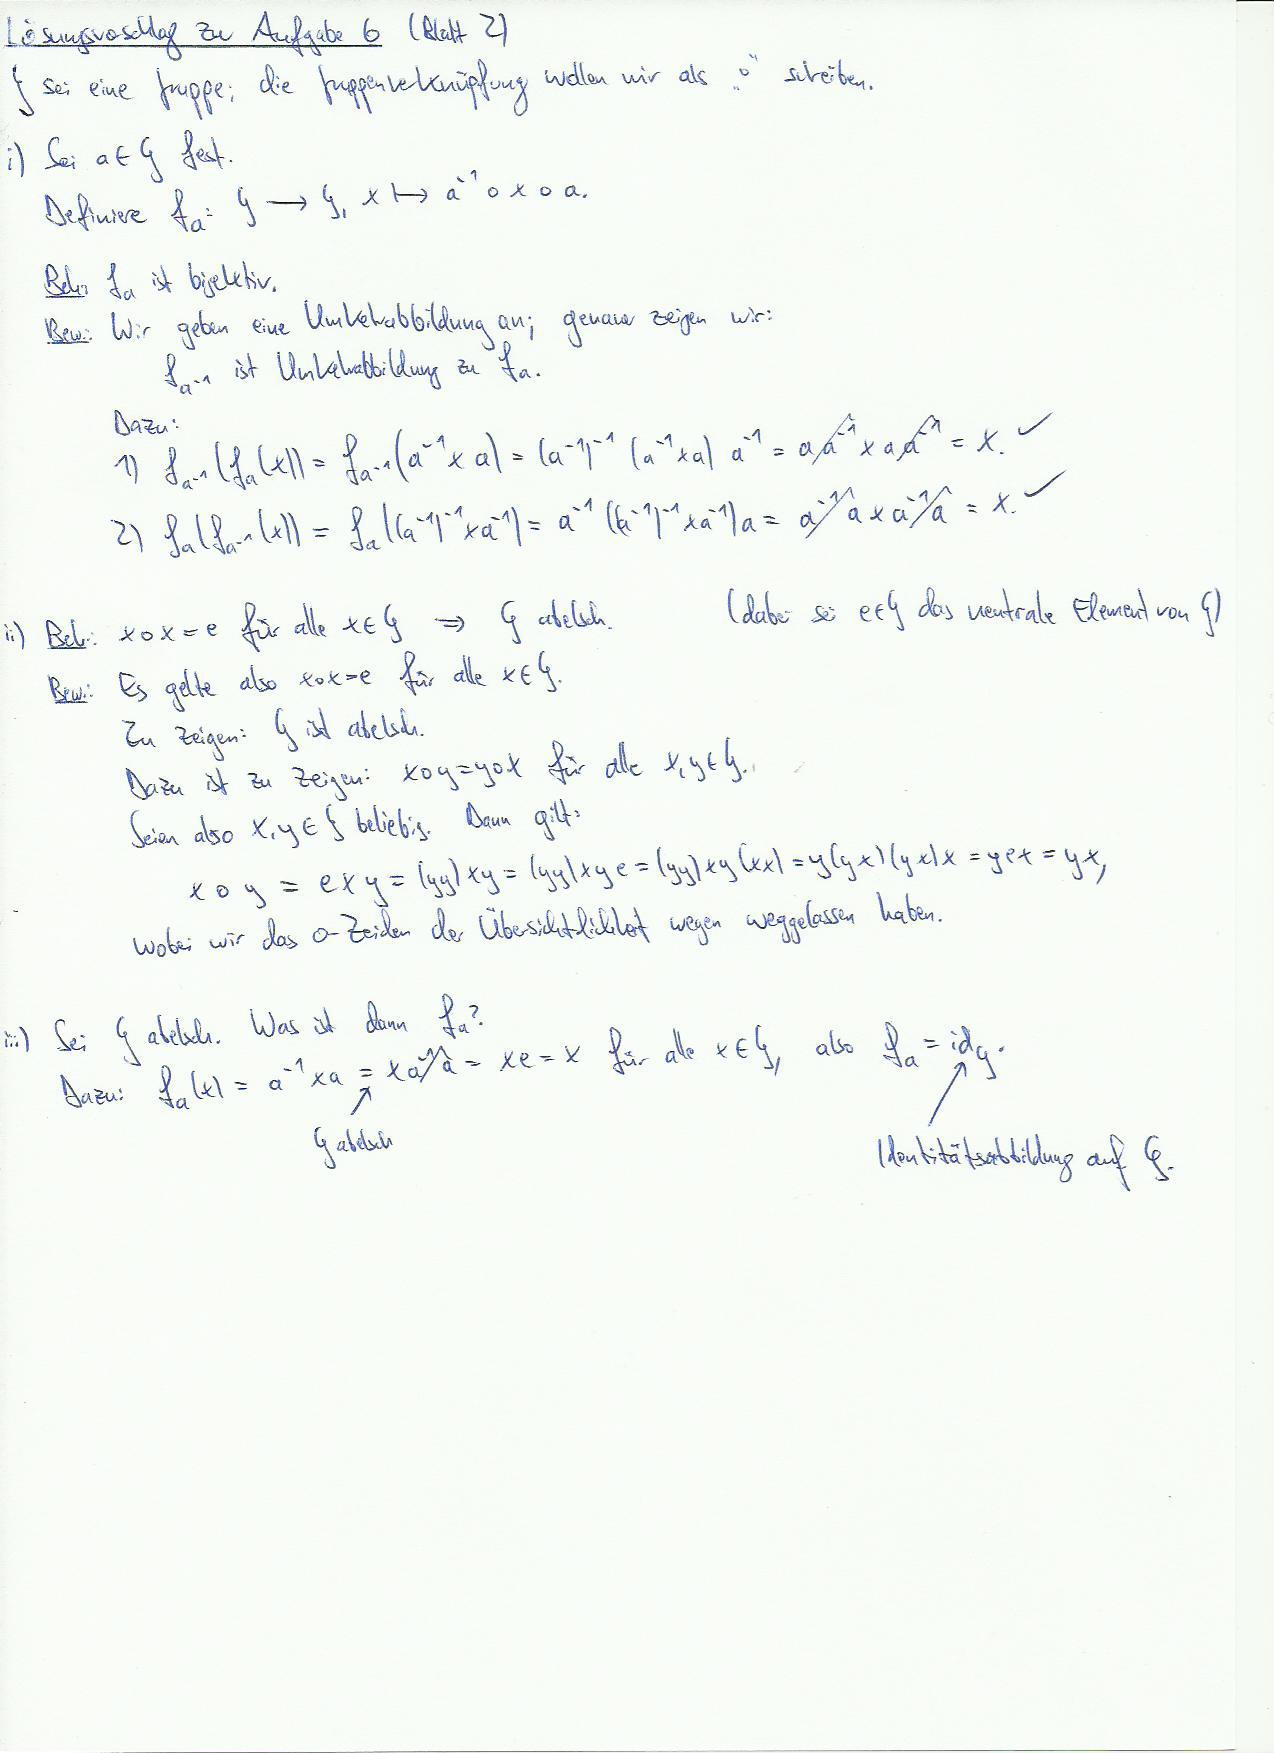 Lösungsvoschlag zu Aufgabe 6 (Blatt 2)
G sei eine Gruppe; die Gruppenverknüpfung wollen wir als „∘“ schreiben.
i) Sei a ∈ G fest.
Definiere f_a: G ⟶ G, x ↦ a⁻¹ ∘ x ∘ a.
Beh.: f_a ist bijektiv.
Bew.: Wir geben eine Umkehrabbildung an; genauer zeigen wir:
f_{a⁻¹} ist Umkehrabbildung zu f_a.
Dazu:
1) f_{a⁻¹}(f_a(x)) = f_{a⁻¹}(a⁻¹xa) = (a⁻¹)⁻¹ (a⁻¹xa) a⁻¹ = aa⁻¹xaa⁻¹ = x. ✓
2) f_a(f_{a⁻¹}(x)) = f_a((a⁻¹)⁻¹xa⁻¹) = a⁻¹((a⁻¹)⁻¹xa⁻¹)a = a⁻¹axa⁻¹a = x. ✓
ii) Beh.: x∘x=e für alle x∈G ⇒ G abelsch. (dabei sei e∈G das neutrale Element von G)
Bew.: Es gelte also x∘x=e für alle x∈G.
Zu zeigen: G ist abelsch.
Dazu ist zu zeigen: x∘y=y∘x für alle x,y∈G.
Seien also x,y∈G beliebig. Dann gilt:
x∘y = exy = (yy)xy = (yy)xye = (yy)xy(xx) = y(yx)(yx)x = yex = yx,
wobei wir das ∘-Zeichen der Übersichtlichkeit wegen weggelassen haben.
iii) Sei G abelsch. Was ist dann f_a?
Dazu: f_a(x) = a⁻¹xa = xa⁻¹a = xe = x für alle x∈G, also f_a = id_G.
G abelsch
Identitätsabbildung auf G.